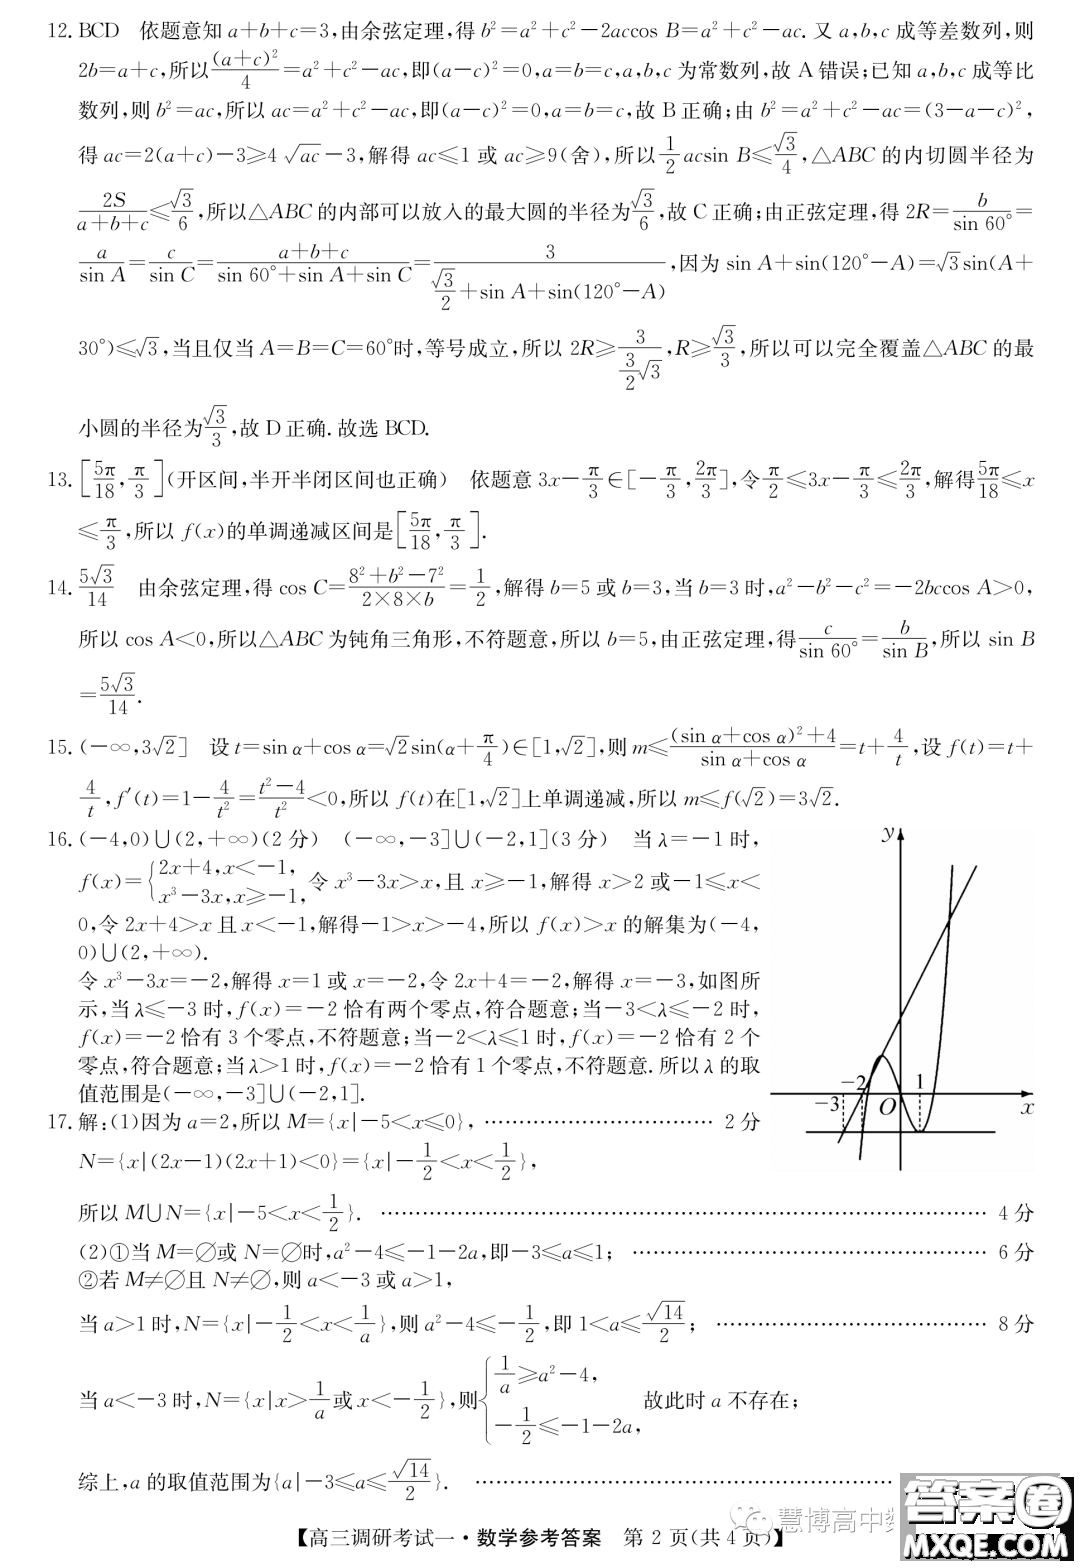 12. BCD 依题意知 a+b+c=3,由余弦定理,得 b²=a²+c²−2accos B=a²+c²−ac. 又 a,b,c 成等差数列,则
2b=a+c,所以(a+c)²/4=a²+c²−ac,即(a−c)²=0,a=b=c,a,b,c 为常数列,故 A 错误;已知 a,b,c 成等比
数列,则 b²=ac,所以 ac=a²+c²−ac,即(a−c)²=0,a=b=c,故 B 正确;由 b²=a²+c²−ac=(3−a−c)²,
得 ac=2(a+c)−3≥4√ac−3,解得 ac≤1 或 ac≥9(舍),所以 1/2 acsin B≤√3/4,△ABC 的内切圆半径为
2S/(a+b+c)≤√3/6,所以△ABC 的内部可以放入的最大圆的半径为√3/6,故 C 正确;由正弦定理,得 2R=b/sin 60°=
a/sin A=c/sin C=(a+b+c)/(sin 60°+sin A+sin C)=3/(√3/2+sin A+sin(120°−A)),因为 sin A+sin(120°−A)=√3sin(A+
30°)≤√3,当且仅当 A=B=C=60°时,等号成立,所以 2R≥3/(3/2 √3),R≥√3/3,所以可以完全覆盖△ABC 的最
小圆的半径为√3/3,故 D 正确. 故选 BCD.
13. [5π/18,π/3](开区间,半开半闭区间也正确) 依题意 3x−π/3∈[−π/3,2π/3],令π/2≤3x−π/3≤2π/3,解得5π/18≤x
≤π/3,所以 f(x)的单调递减区间是[5π/18,π/3].
14. 5√3/14 由余弦定理,得 cos C=(8²+b²−7²)/(2×8×b)=1/2,解得 b=5 或 b=3,当 b=3 时,a²−b²−c²=−2bccos A>0,
所以 cos A<0,所以△ABC 为钝角三角形,不符题意,所以 b=5,由正弦定理,得c/sin 60°=b/sin B,所以 sin B
=5√3/14.
15. (−∞,3√2] 设 t=sin α+cos α=√2sin(α+π/4)∈[1,√2],则 m≤((sin α+cos α)²+4)/(sin α+cos α)=t+4/t,设 f(t)=t+
4/t,f′(t)=1−4/t²=(t²−4)/t²<0,所以 f(t)在[1,√2]上单调递减,所以 m≤f(√2)=3√2.
16. (−4,0)∪(2,+∞)(2 分) (−∞,−3]∪(−2,1](3 分) 当 λ=−1 时,
f(x)={2x+4,x<−1,
x³−3x,x≥−1, 令 x³−3x>x,且 x≥−1,解得 x>2 或−1≤x<
0,令 2x+4>x 且 x<−1,解得−1>x>−4,所以 f(x)>x 的解集为(−4,
0)∪(2,+∞).
令 x³−3x=−2,解得 x=1 或 x=−2,令 2x+4=−2,解得 x=−3,如图所
示,当 λ≤−3 时,f(x)=−2 恰有两个零点,符合题意;当−3<λ≤−2 时,
f(x)=−2 恰有 3 个零点,不符题意;当−2<λ≤1 时,f(x)=−2 恰有 2 个
零点,符合题意;当 λ>1 时,f(x)=−2 恰有 1 个零点,不符题意. 所以 λ 的取
值范围是(−∞,−3]∪(−2,1].
y
−2
1
−3
O
x
17. 解:(1)因为 a=2,所以 M={x|−5<x≤0}, …………………………… 2 分
N={x|(2x−1)(2x+1)<0}={x|−1/2<x<1/2},
所以 M∪N={x|−5<x<1/2}. …………………………………………………… 4 分
(2)①当 M=∅或 N=∅时,a²−4≤−1−2a,即−3≤a≤1; ……………………………… 6 分
②若 M≠∅且 N≠∅,则 a<−3 或 a>1,
当 a>1 时,N={x|−1/2<x<1/a},则 a²−4≤−1/2,即 1<a≤√14/2; ……………………………… 8 分
当 a<−3 时,N={x|x>1/a或 x<−1/2},则{1/a≥a²−4,
−1/2≤−1−2a, 故此时 a 不存在;
综上,a 的取值范围为{a|−3≤a≤√14/2}. ………………………………………
【高三调研考试一·数学参考答案 第 2 页(共 4 页)】
慧博高中数
答案圈
MXQE.COM